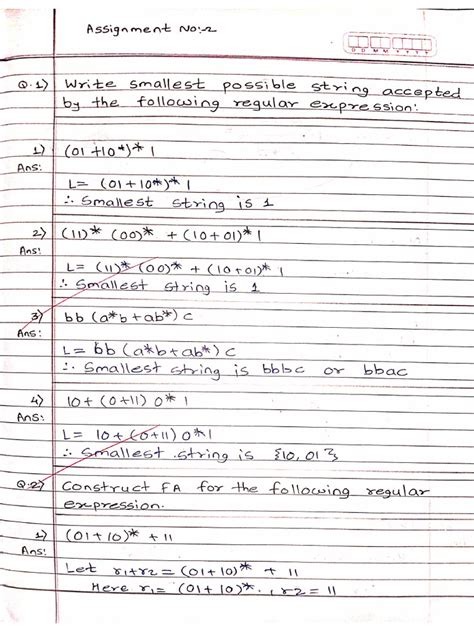 Assignment No:-2
D D M M Y Y Y Y
Q.1) Write smallest possible string accepted
by the following regular expression:
1) (01 + 10*)* 1
Ans:
L = (01 + 10*)* 1
∴ Smallest string is 1
2) (11)* (00)* + (10 + 01)* 1
Ans:
L = (11)* (00)* + (10 + 01)* 1
∴ Smallest string is 1
3) bb (a*b + ab*) c
Ans:
L = bb (a*b + ab*) c
∴ Smallest string is bbbc or bbac
4) 10 + (0 + 11) 0* 1
Ans:
L = 10 + (0 + 11) 0* 1
∴ Smallest string is {10, 01}
Q.2) Construct FA for the following regular
expression.
1) (01 + 10)* + 11
Ans:
Let r1 + r2 = (01 + 10)* + 11
Here r1 = (01 + 10)*, r2 = 11